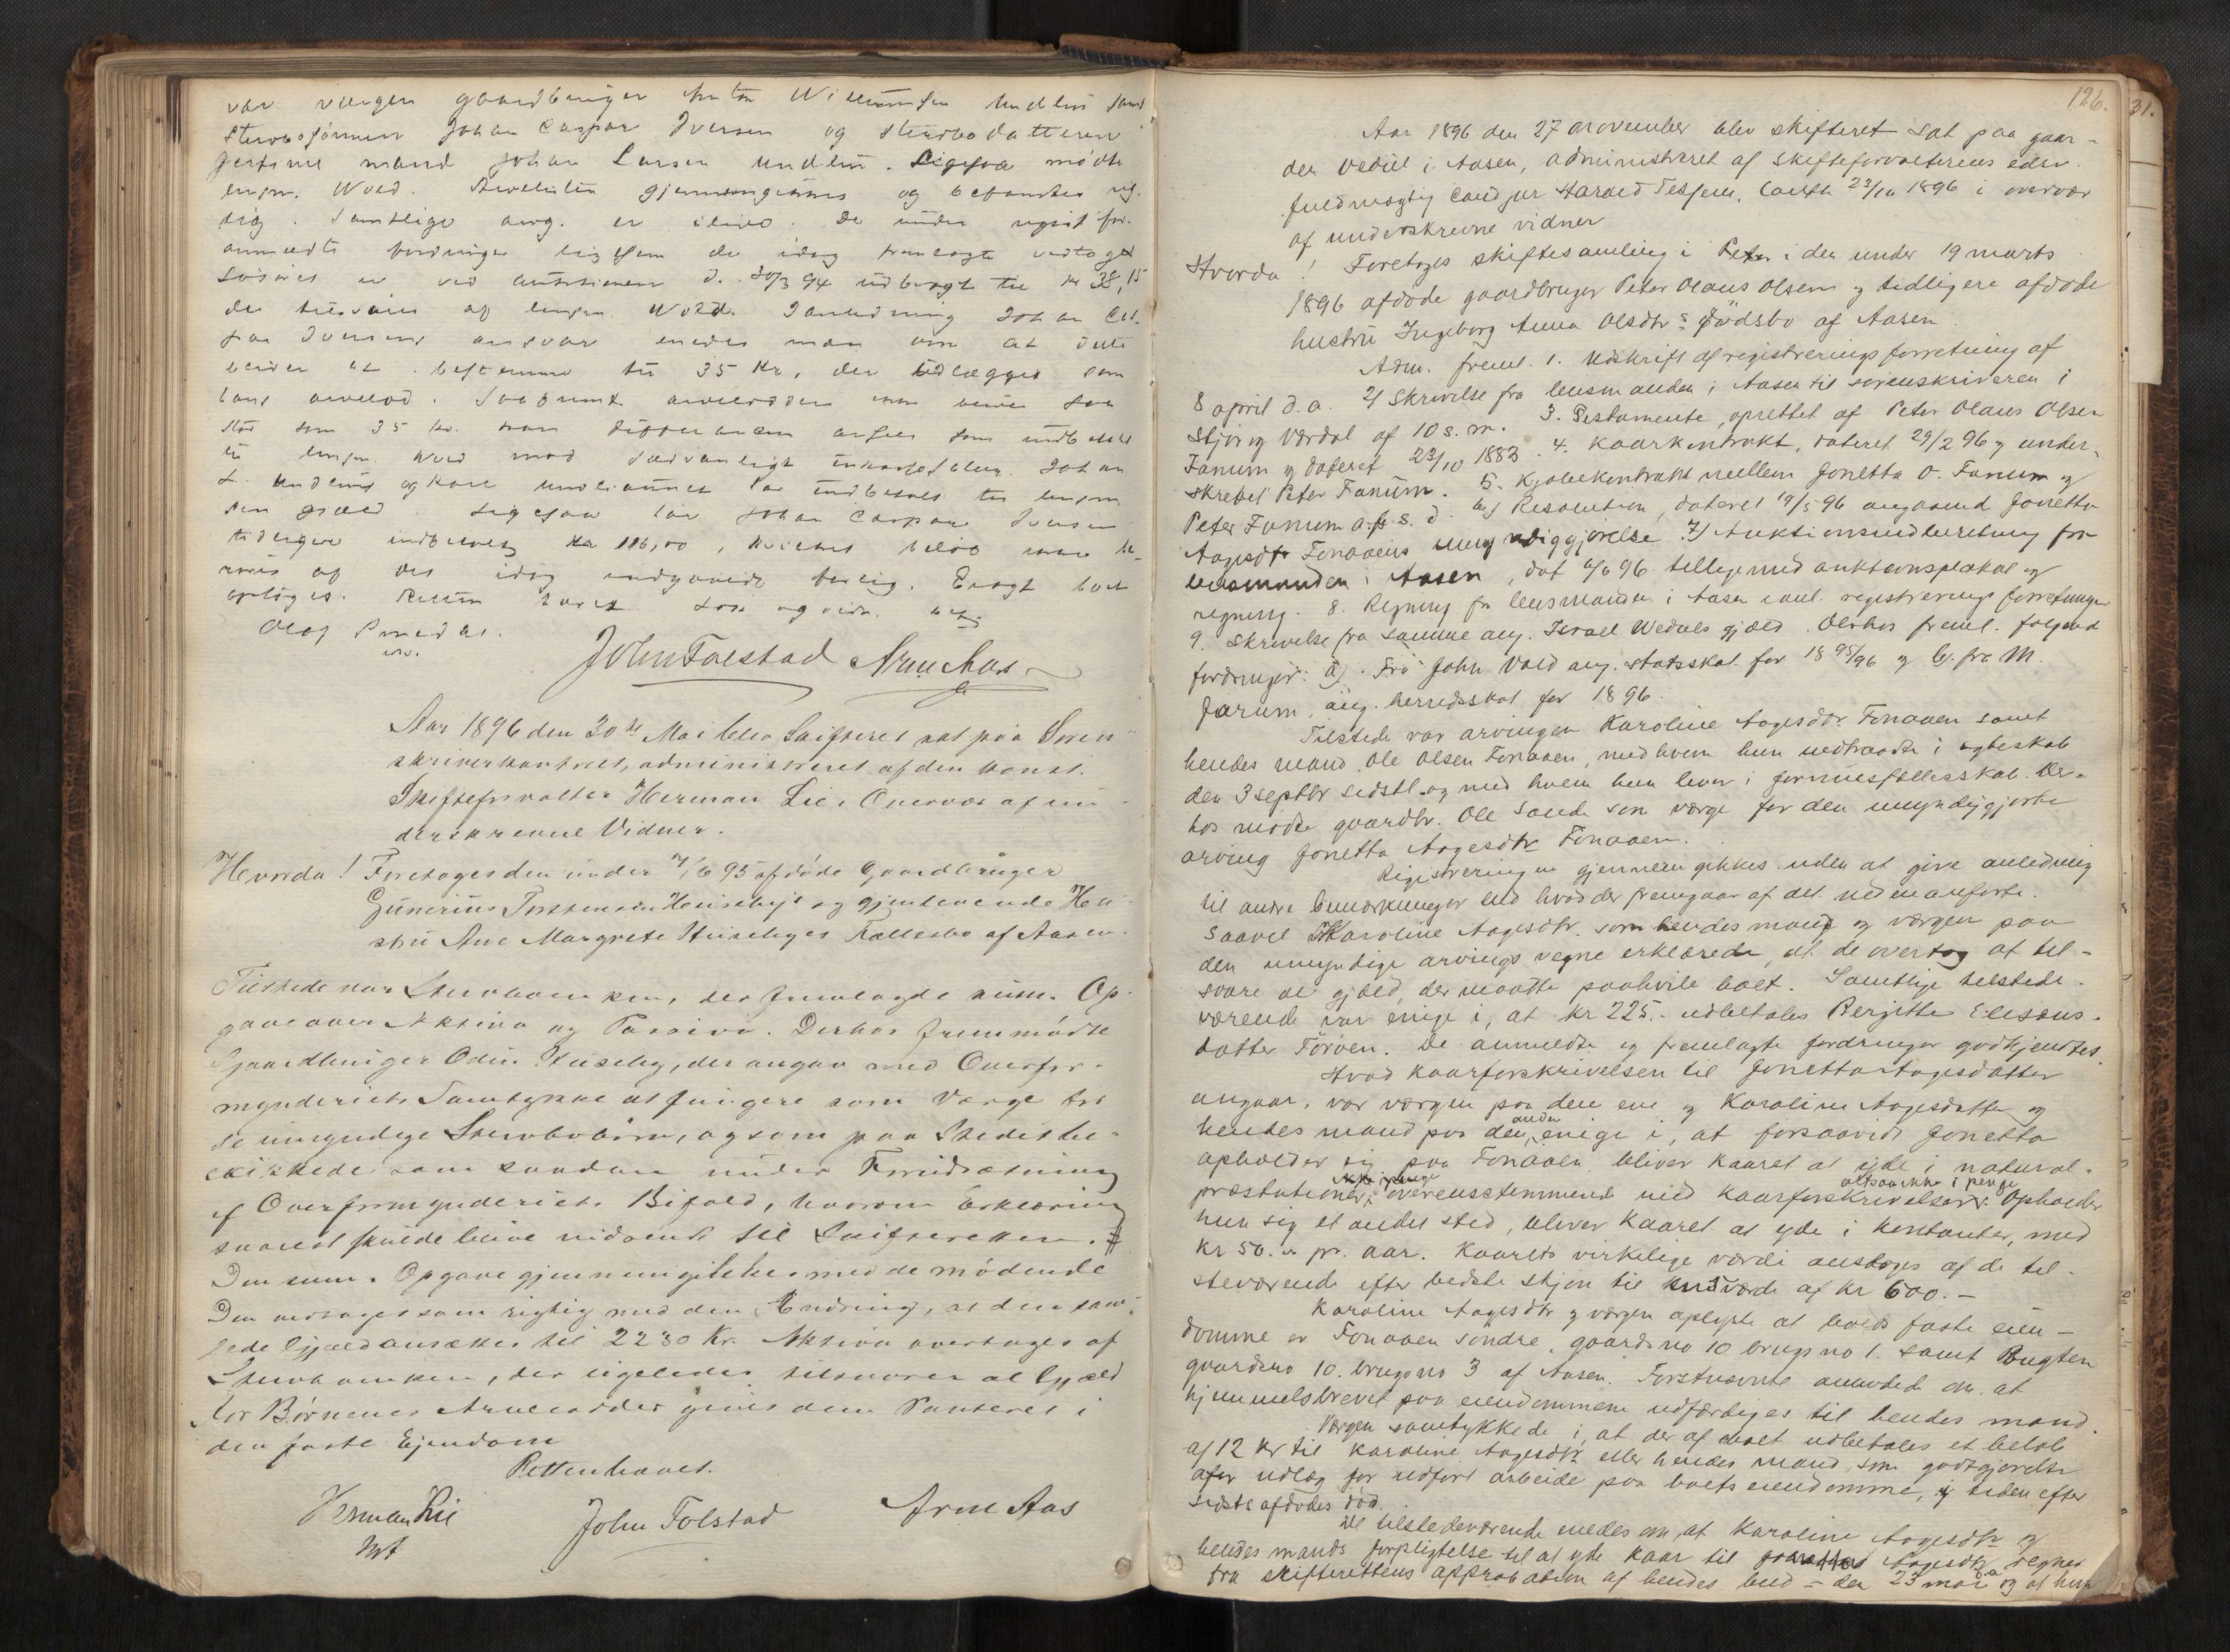 var værgen gaardbruger Anton Willumsen Undlien samt
Stervbosønnen Johan Caspar Iversen og Stervbodatteren
mand Johan Larsen Undlien. Ligesaa mødte
lensm. Wold. gjennemgikkes og befandtes rig-
tig. Samtlige ang. er De under
anmeldte fordringer ligesom de idag fremlagte vedtoges
Løsøret er ved auktionen d. 30/3 94 udbragt til kr 38,15
der tilsvares af lensm. Wold. I anledning Johan Cas-
par Iversens ansvar enedes man om at dette
bliver at bestemme til 35 Kr, der udlægges som
hans arvelod. arvelodden ikke bliver saa
stor som 35 kr. maa differencen ansees som indbetalt
til lensm. Wold mod sædvanligt Johan
L. Undlien og har indbetalt til lensm.
sin gjæld. Ligesaa har Johan Caspar Iversen
tidligere indbetalt kr 116,00, hvilket beløb
af det idag Boet
optoges. Retten hævet
Olaf
John Folstad Arne Aas
Aar 1896 den 30te Mai blev Skifteret sat paa Soren-
skriverkontoret, administreret af den konst.
Skifteforvalter Herman Lie i Overvær af un-
derskrevne Vidner.
Hvorda! Foretoges den under 7/6 95 afdøde Gaardbruger
Gunerius Torstensen Huseby's og gjenlevende Hu-
stru Ane Margrete Husebyes Fællesbo af Aasen.
Tilstede var Stervboenken, der fremlagde sum. Op-
gave over Aktiva og Passiva. Derhos fremmødte
Gaardbruger Odin Huseby, der angav med Overfor-
mynderiets Samtykke at fungere som Værge for
de umyndige Stervbobørn, og som paa Stedet be-
skikkedes som saadan under Forudsætning
af Overformynderiets Bifald, hvorom Erklæring
snarest skulde blive indsendt til Skifteretten. #
Den sum. Opgave gjennemgikkes med de mødende
Den vedtoges som rigtig med den Ændring, at den sam-
lede Gjæld ansættes til 2230 Kr. Aktiva overtages af
Stervboenken, der ligeledes tilsvarer al Gjæld
For Børnenes Arvelodder gives dem Panteret i
den faste Ejendom
Retten hævet.
Herman Lie John Folstad Arne Aas
126. 31.
Aar 1896 den 27 november blev skifteret sat paa gaar-
den Vedul i Aasen, administreret af skifteforvalterens edsv.
fuldmægtig cand jur Harald Tessem, const 23/10 1896 i overvær
af underskrevne vidner
Hvorda! Foretoges skiftesamling i Peter i den under 19 marts
1896 afdøde gaardbruger Peter Olaus Olsens og tidligere afdøde
hustru Ingeborg Anna Olsdtr's dødsbo af Aasen
Adm. freml. 1. Udskrift af registreringsforretning af
8 april d.a. 2) Skrivelse fra lensmanden i Aasen til sorenskriveren i
Stjør og Værdal af 10 s. m. 3. Testamente, oprettet af Peter Olaus Olsen
Fanum og dateret 23/10 1883. 4. Kaarkontrakt, dateret 29/2 96 og under-
skrevet Peter Fanum. 5. Kjøbekontrakt mellem Jonetta O. Fanum og
Peter Fanum af s. d. 6) Resolution, dateret 19/5 96 angaaend Jonetta
Aagesdtr Fonaaens umyndiggjørelse 7) Auktionsindberetning fra
lensmanden i Aasen, dat 6/6 96 tilligemed auktionsplakat og
regning. 8. Regning fra lensmanden i Aasen i anl. registreringsforretningen
9. Skrivelse fra samme ang. Israel Wedals gjæld. Derhos freml. følgend
fordringer: a). Fra John Vold ang. statsskat for 1895/96 og b). fra M.
Jarum, ang. herredsskat for 1896.
Tilstede var arvingen Karoline Aagesdtr. Fonaaen samt
hendes mand Ole Olsen Fonaaen, med hvem hun indtraadte i ægteskab
den 3 septbr sidstl. og med hvem hun lever i formuesfællesskab. Der-
hos mødte gaardbr. Ole Sande som værge for den umyndiggjorte
arving Jonetta Aagesdtr Fonaaen.
Registreringen gjennemgikkes uden at give anledning
til andre bemærkninger end hvad der fremgaar af det nedenanførte.
Saavel Karoline Aagesdtr. som hendes mand og værgen paa
den umyndige arvings vegne erklærede, at de overtog at til-
svare al gjæld, der maatte paahvile boet. Samtlige tilstede-
værende var enige i, at kr 225.- udbetales Bergitte Elisæus-
datter Förven. De anmeldte og fremlagte fordringer godkjendtes.
Hvad kaarforskrivelsen til Jonetta Aagesdatter
angaar, var værgen paa den ene og Karoline Aagesdatter og
hendes mand paa den anden enige i, at forsaavidt Jonetta
opholder sig paa Fonaaen bliver kaaret at yde i natural-
præstationer, altsaa ikke i penge overensstemmende med kaarforskrivelsen. Opholder
hun sig et andet sted, bliver kaaret at yde i kontanter, med
kr 50.- pr. aar. Kaarets virkelige værdi ansloges af de til-
steværende efter bedste skjøn til værdi af kr 600.-
Karoline Aagesdtr og værgen oplyste at boets faste eien-
domme er Fonaaen søndre, gaards no 10 brugs no 1. samt Bugten
gaardsno 10. brugsno 3 af Aasen. Førstnævnte anmodede om at
hjemmelsbrevet paa eiendommene udfærdiges til hendes mand.
Værgen samtykkede i, at der af boet udbetales et beløb
af 12 kr til Karoline Aagesdtr eller hendes mand som godtgjørelse
for udlæg for udført arbeide paa boets eiendomme, i tiden efter
sidste afdødes død.
De tilstedeværende enedes om, at Karoline Aagesdtr og
hendes mands forpligtelse til at yde kaar til Aagesdtr regnes
fra skifterettens approbation af hendes bud - den 23 mai og at hun